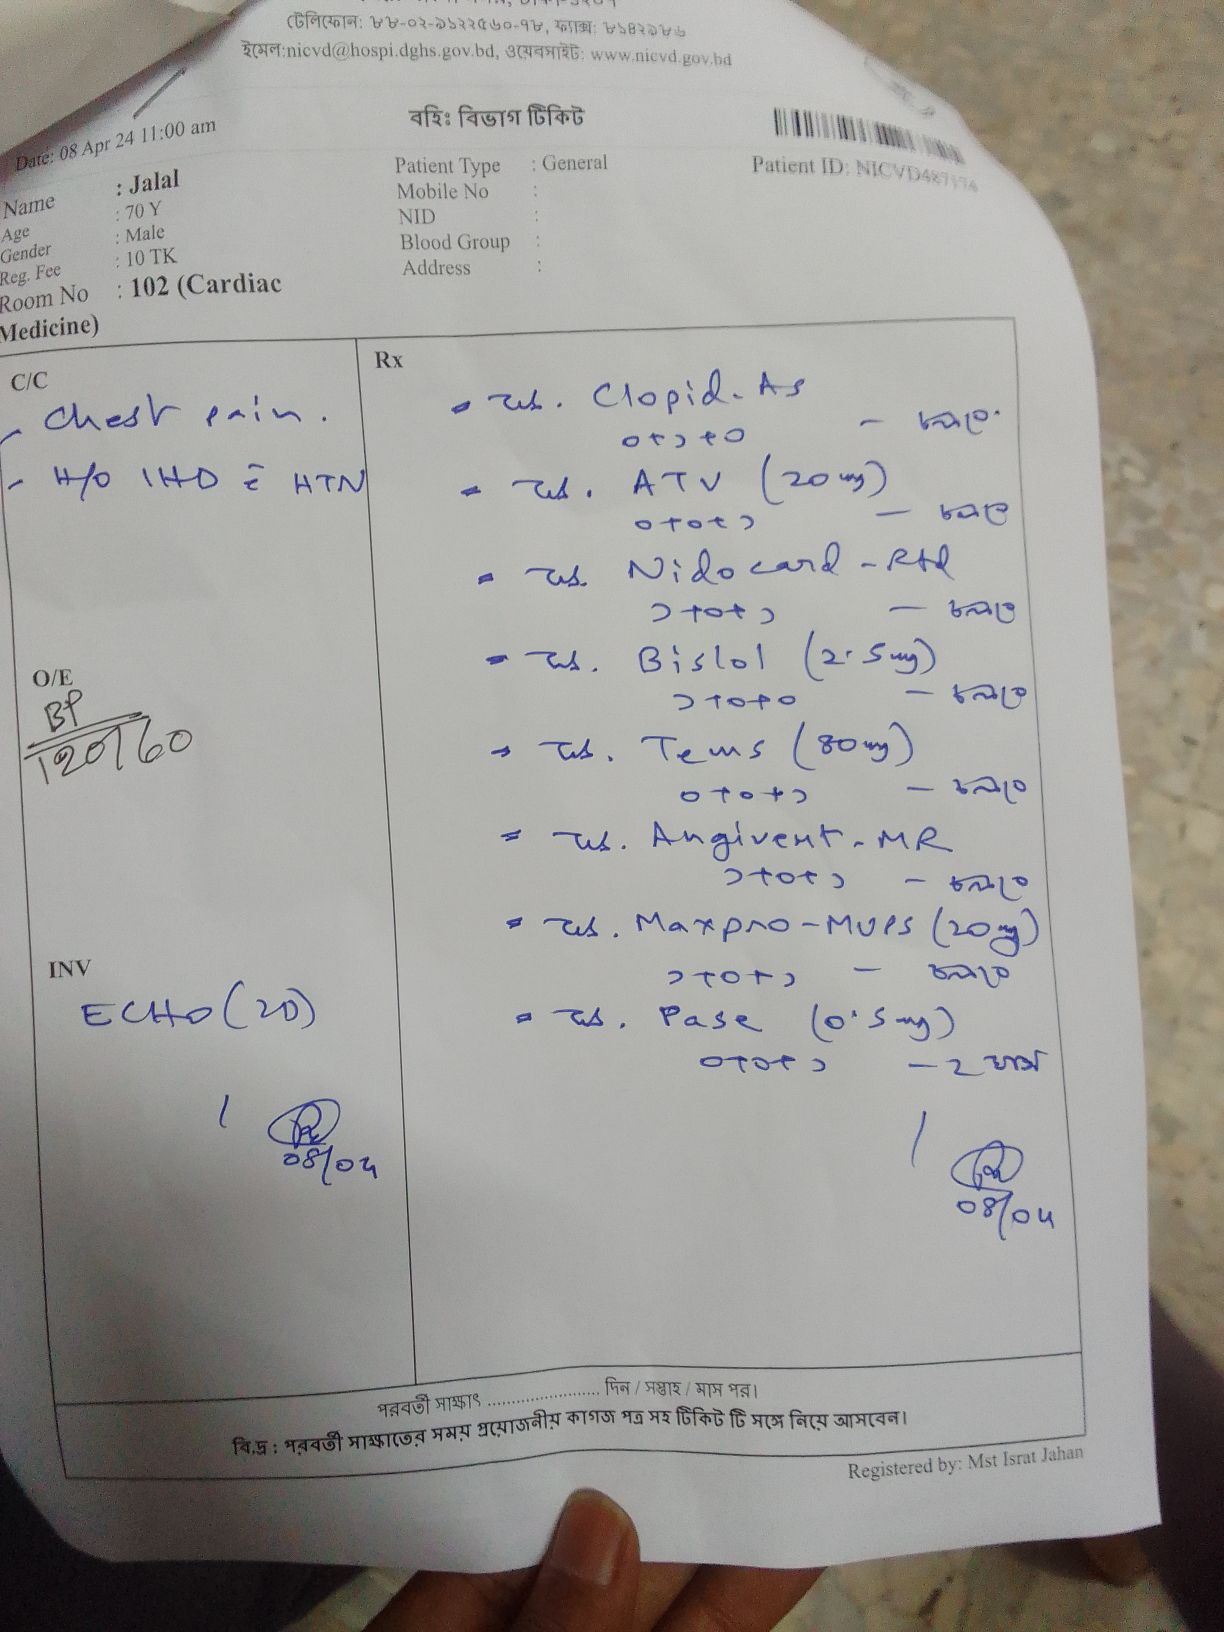 টেলিফোন: ৮৮-০২-৯১২২৫৬০-৭৮, ফ্যাক্স: ৮১৪২৯৮৬
ইমেল:nicvd@hospi.dghs.gov.bd, ওয়েবসাইট: www.nicvd.gov.bd
বহিঃ বিভাগ টিকিট
Date: 08 Apr 24 11:00 am
Patient ID: NICVD487174
Name : Jalal
Patient Type : General
Age : 70 Y
Mobile No :
Gender : Male
NID :
Reg. Fee : 10 TK
Blood Group :
Room No : 102 (Cardiac
Medicine)
Address :
C/C
- Chest pain.
- H/O IHD c̄ HTN
O/E
BP
120/60
INV
ECHO (2D)
08/04
Rx
- ট্যাব. Clopid-As
০+১+০ - চলবে
- ট্যাব. ATV (20mg)
০+০+১ - চলবে
- ট্যাব. Nidocard-Rtd
১+০+১ - চলবে
- ট্যাব. Bislol (2.5mg)
১+০+০ - চলবে
- ট্যাব. Tems (80mg)
০+০+১ - চলবে
- ট্যাব. Angivent-MR
১+০+১ - চলবে
- ট্যাব. Maxpro-MUPS (20mg)
১+০+১ - চলবে
- ট্যাব. Pase (0.5mg)
০+০+১ - ২ মাস
08/04
পরবর্তী সাক্ষাৎ ......................... দিন / সপ্তাহ / মাস পর।
বি.দ্র : পরবর্তী সাক্ষাতের সময় প্রয়োজনীয় কাগজ পত্র সহ টিকিট টি সঙ্গে নিয়ে আসবেন।
Registered by: Mst Israt Jahan